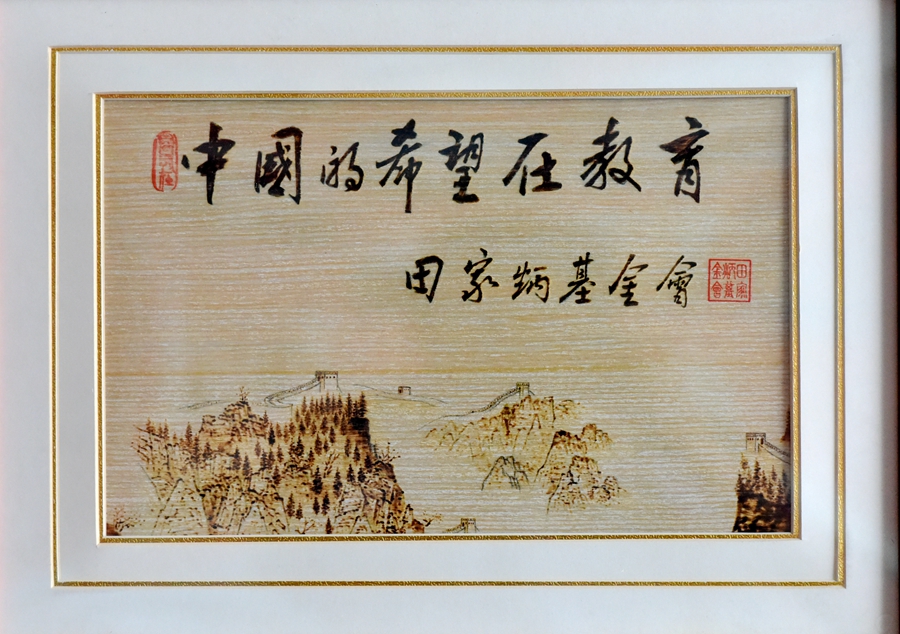 中國的希望在教育
田家炳基金會
田家炳基金會